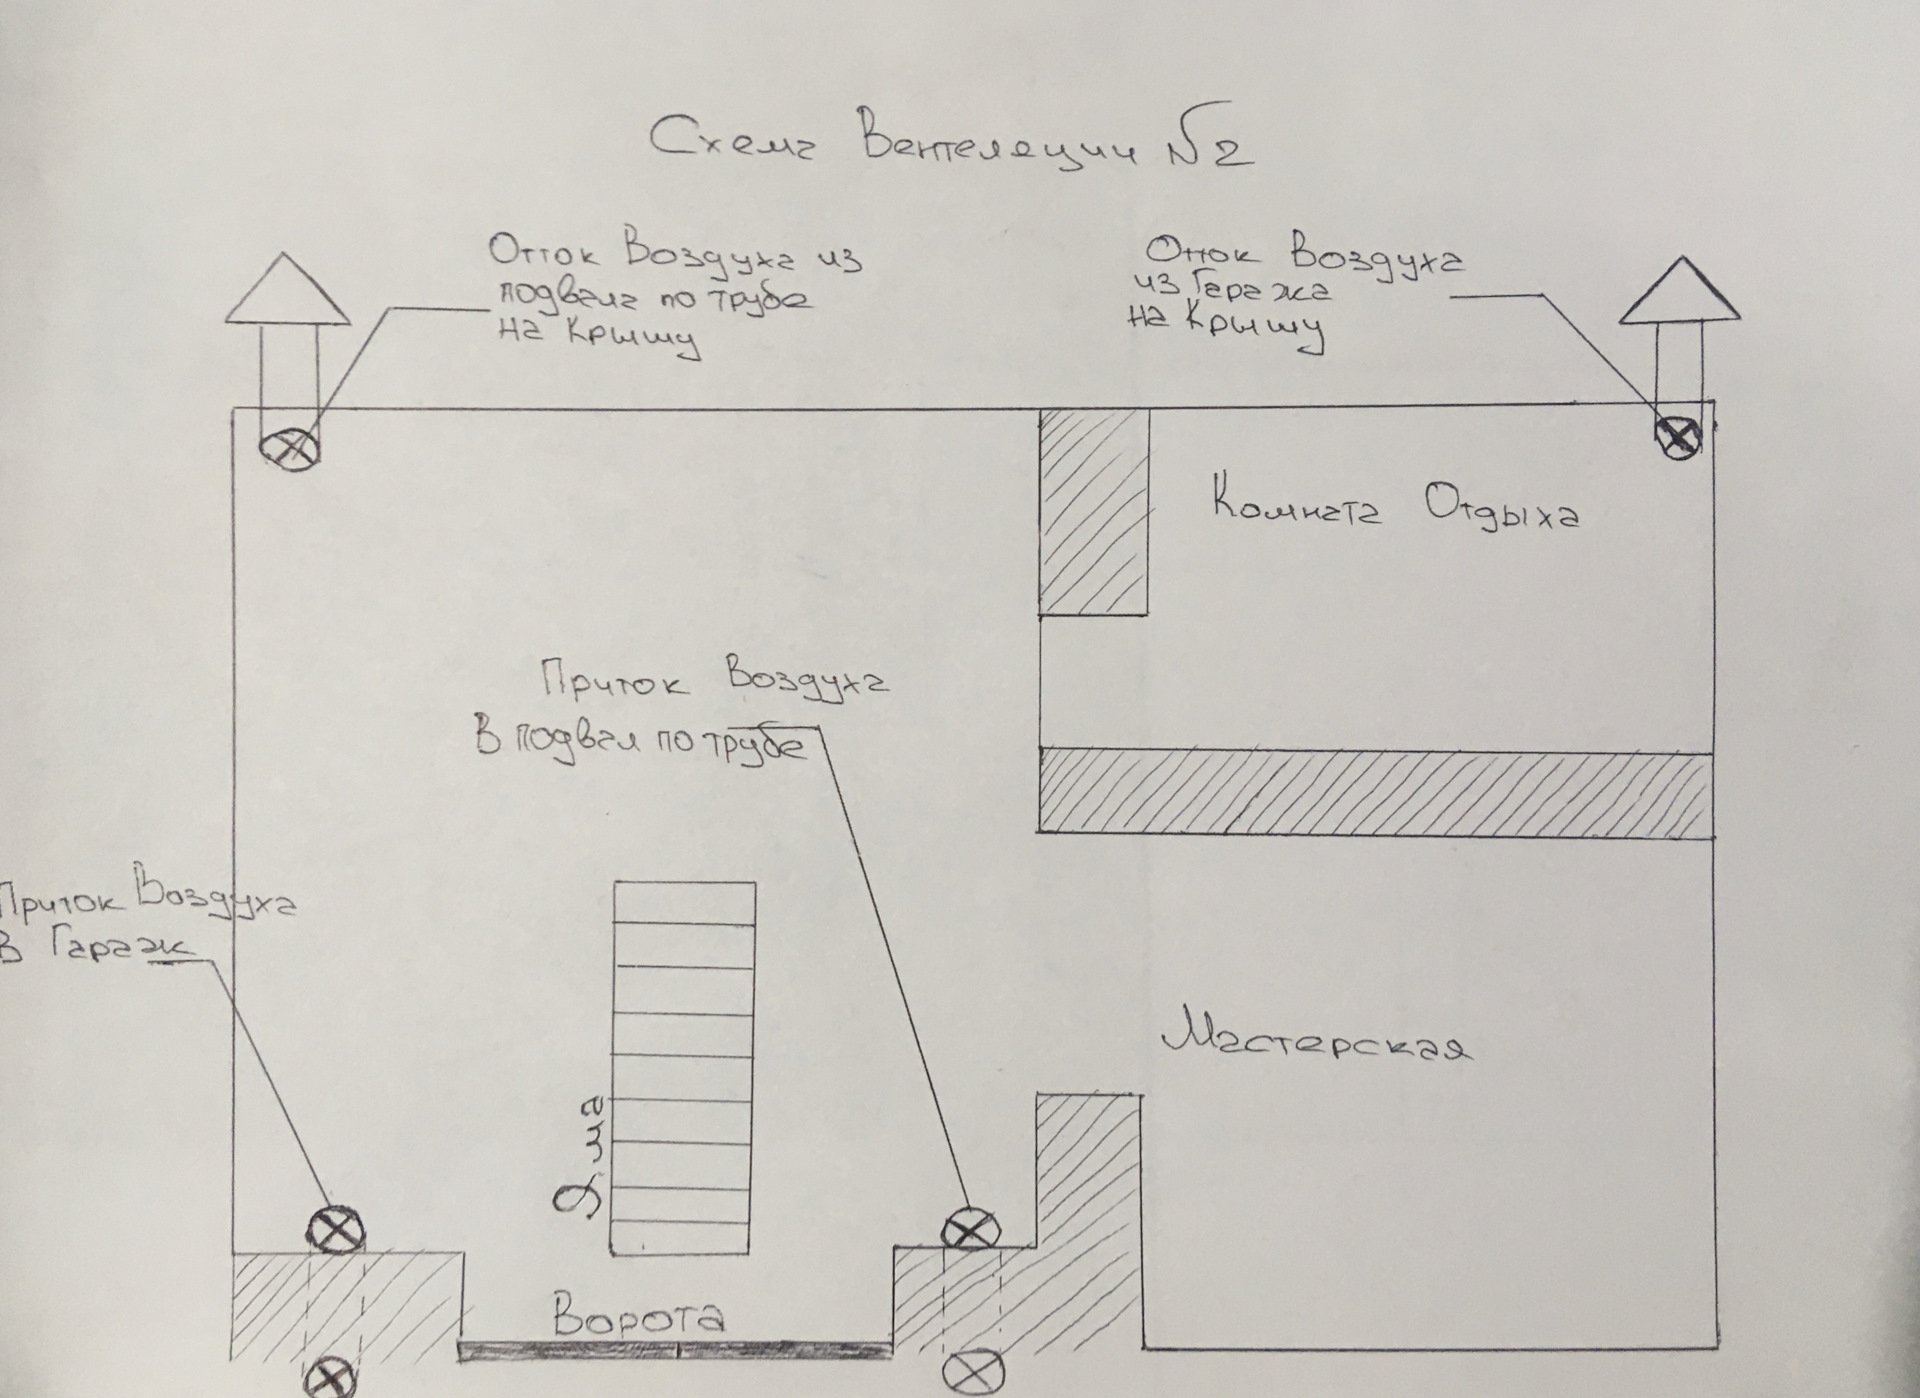 Схема Вентеляции №2
Отток Воздуха из
подвала по трубе
на Крышу
Отток Воздуха
из Гаража
на Крышу
Комната Отдыха
Приток Воздуха
В подвал по трубе
Приток Воздуха
В Гараж
Мастерская
Яма
Ворота